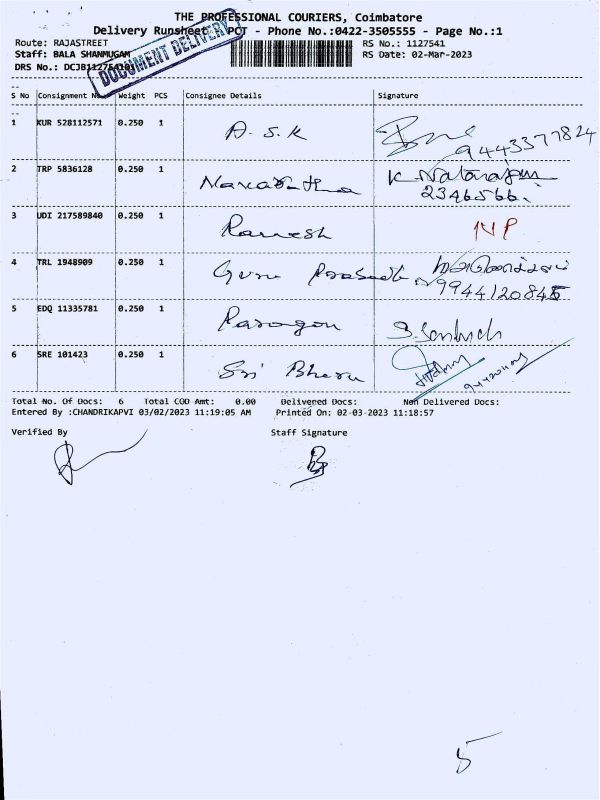 THE PROFESSIONAL COURIERS, Coimbatore
Delivery Runsheet - PCT - Phone No.:0422-3505555 - Page No.:1
Route: RAJASTREET RS No.: 1127541
Staff: BALA SHANMUGAM RS Date: 02-Mar-2023
DRS No.:
DOCUMENT DELIVERY
S No Consignment Weight PCS Consignee Details Signature
1 KUR 528112571 0.250 1 A.S.K 9443377824
2 TRP 5836128 0.250 1 K. Natarajan
2346566.
3 UDI 217589840 0.250 1 Ramesh NP
4 TRL 1948909 0.250 1 Guru Prasath
9944120845
5 EDQ 11335781 0.250 1 Paragon
6 SRE 101423 0.250 1 Sri
Total No. Of Docs: 6 Total COD Amt: 0.00 Delivered Docs: Non Delivered Docs:
Entered By :CHANDRIKAPVI 03/02/2023 11:19:05 AM Printed On: 02-03-2023 11:18:57
Verified By Staff Signature
5